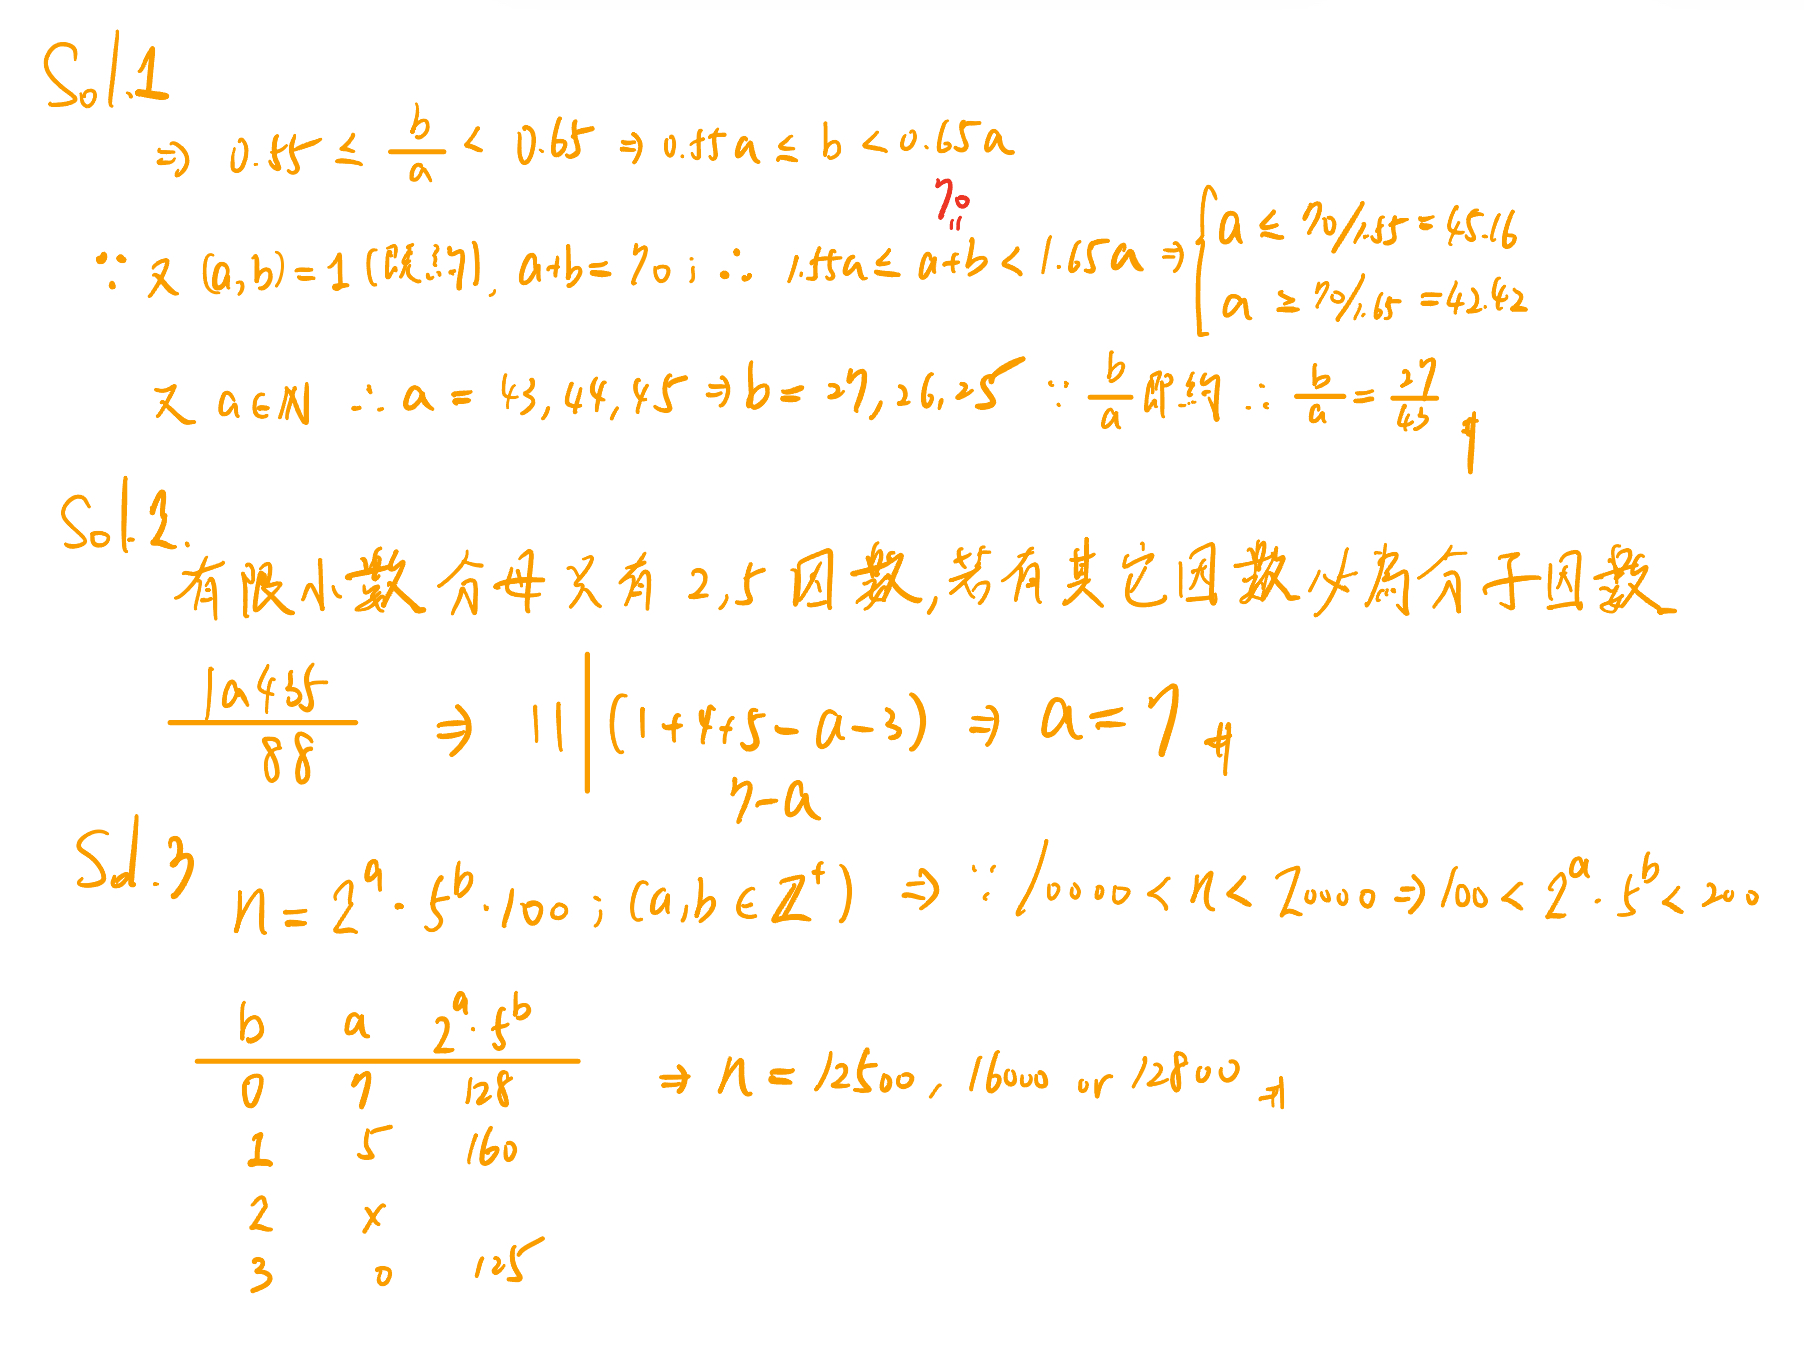 Sol.1
⇒ 0.55 ≤ b/a < 0.65 ⇒ 0.55a ≤ b < 0.65a
70
∵ 又 (a,b)=1 (既約), a+b=70; ∴ 1.55a ≤ a+b < 1.65a ⇒ { a ≤ 70/1.55 = 45.16
a ≥ 70/1.65 = 42.42
又 a∈ℕ ∴ a = 43, 44, 45 ⇒ b = 27, 26, 25 ∵ b/a 即約 ∴ b/a = 27/43 #
Sol.2.
有限小數分母只有 2,5 因數,若有其它因數必為分子因數
1a435/88 ⇒ 11 | (1+4+5-a-3) ⇒ a = 7 #
7-a
Sol.3
n = 2^a · 5^b · 100 ; (a,b ∈ ℤ⁺) ⇒ ∵ 10000 < n < 20000 ⇒ 100 < 2^a · 5^b < 200
b a 2^a · 5^b
0 7 128 ⇒ n = 12500, 16000 or 12800 #
1 5 160
2 x
3 0 125